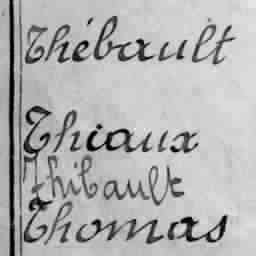 Thébault
Thiaux
Thibault
Thomas